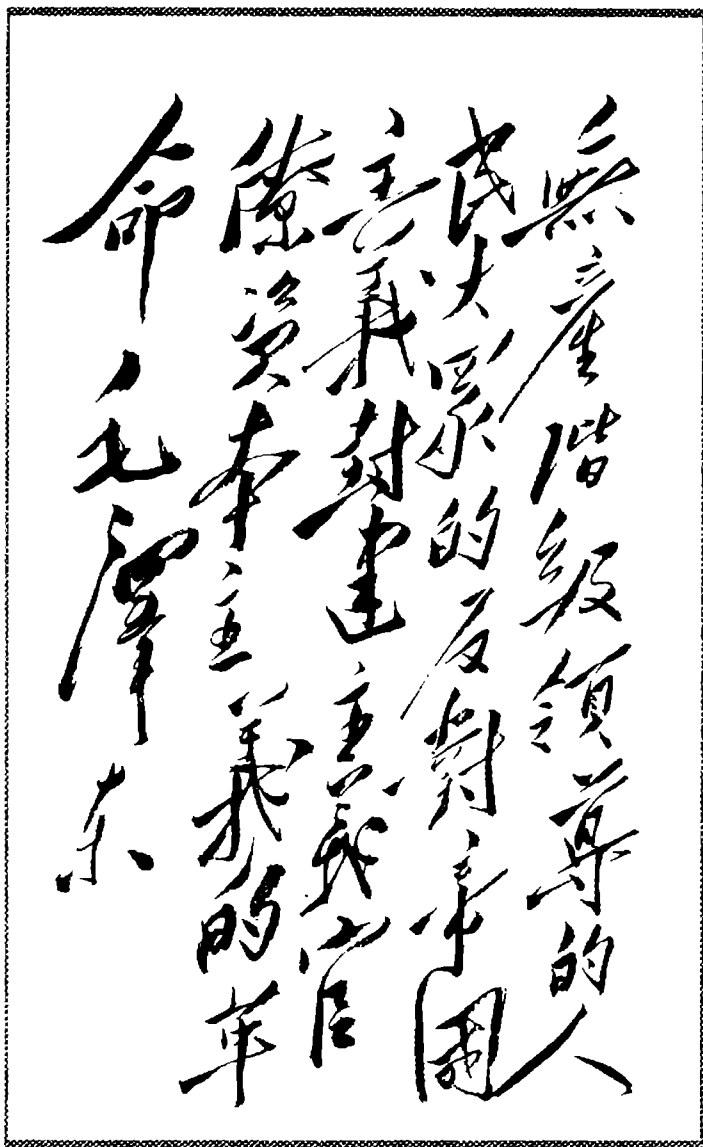 無産階級領導的人
民大眾的反對帝國
主義封建主義官
僚資本主義的革
命 毛澤东